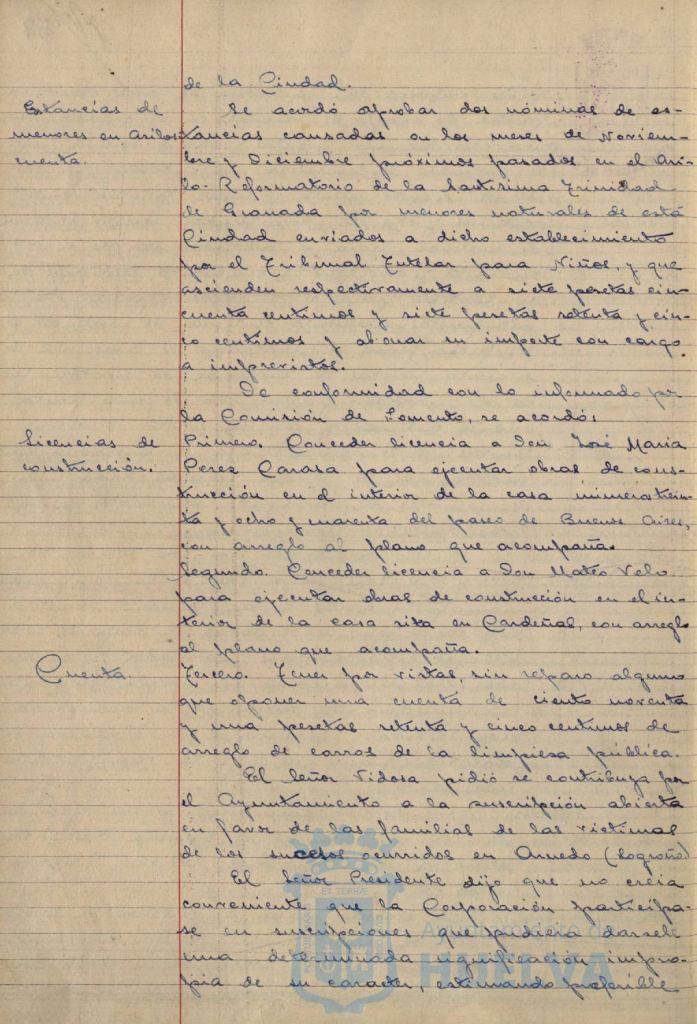 de la Ciudad.
Estancias de
menores en Asilos
cuenta.
Se acordó aprobar dos nóminas de es-
tancias causadas en los meses de Noviem-
bre y Diciembre próximos pasados en el Asi-
lo-Reformatorio de la Santísima Trinidad
de Granada por menores naturales de está
Ciudad enviados a dicho establecimiento
por el Tribunal Tutelar para Niños, y que
ascienden respectivamente a siete pesetas cin-
cuenta centimos y siete pesetas setenta y cin-
co centimos y abonar su importe con cargo
a imprevistos.
De conformidad con lo informado por
la Comisión de Fomento, se acordó:
Licencias de
construcción.
Primero. Conceder licencia a Don José María
Perez Carasa para ejecutar obras de cons-
trucción en el interior de la casa números trein-
ta y ocho y cuarenta del paseo de Buenos Aires,
con arreglo al plano que acompaña.
Segundo. Conceder licencia a Don Mateo Velo
para ejecutar obras de construcción en el in-
terior de la casa sita en Cardeñas, con arreglo
al plano que acompaña.
Cuenta.
Tercero. Tener por vistas, sin reparo alguno
que oponer una cuenta de ciento noventa
y una pesetas setenta y cinco centimos de
arreglo de carros de la limpieza pública.
El Señor Vidosa pidió se contribuya por
el Ayuntamiento a la suscripción abierta
en favor de las familias de las víctimas
de los sucesos ocurridos en Arnedo (Logroño)
El Señor Presidente dijo que no creia
conveniente que la Corporación participa-
se en suscripciones que pudiera darsele
una determinada significación impro-
pia de su caracter, estimando preferible
Ayuntamiento de
HUELVA